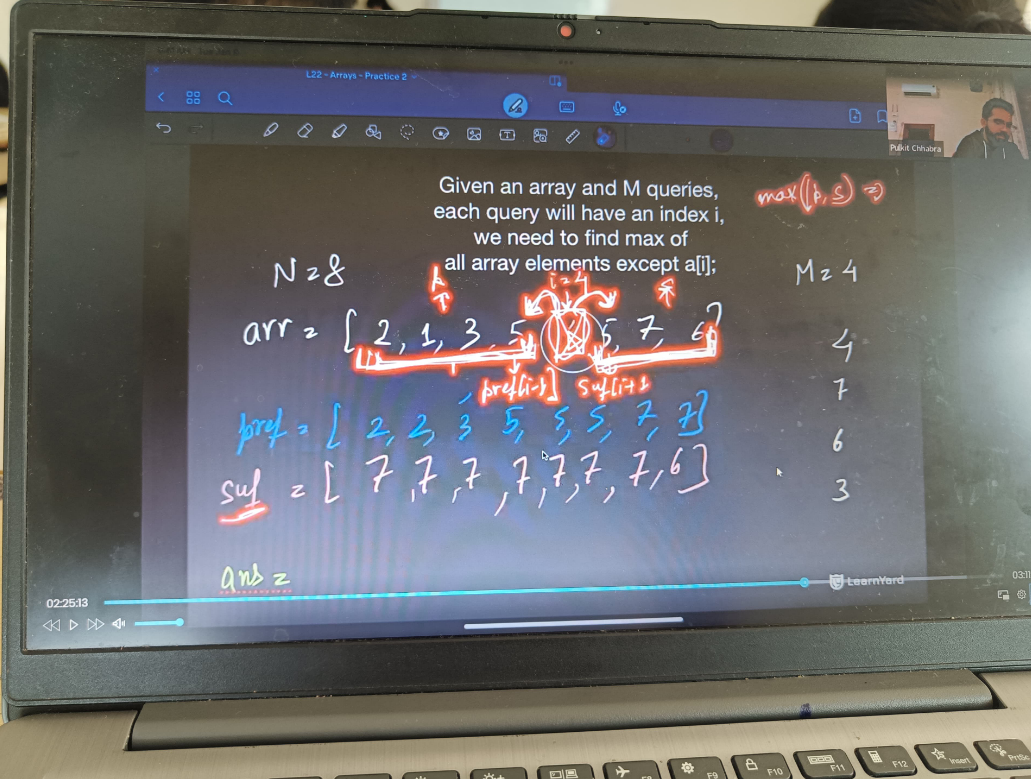 L22 - Arrays - Practice 2
Pulkit Chhabra
Given an array and M queries,
each query will have an index i,
we need to find max of
all array elements except a[i];
max(p, s) ⇒
N = 8
M = 4
i = 4
arr = [ 2, 1, 3, 5 5, 7, 6 ]
pref[i-1] suf[i+1
pref = [ 2, 2, 3 5, 5, 5, 7, 7 ]
suf = [ 7, 7, 7, 7, 7, 7, 7, 6 ]
4
7
6
3
ans =
LearnYard
02:25:13
F9
F10
F11
F12
Insert
PrtSc